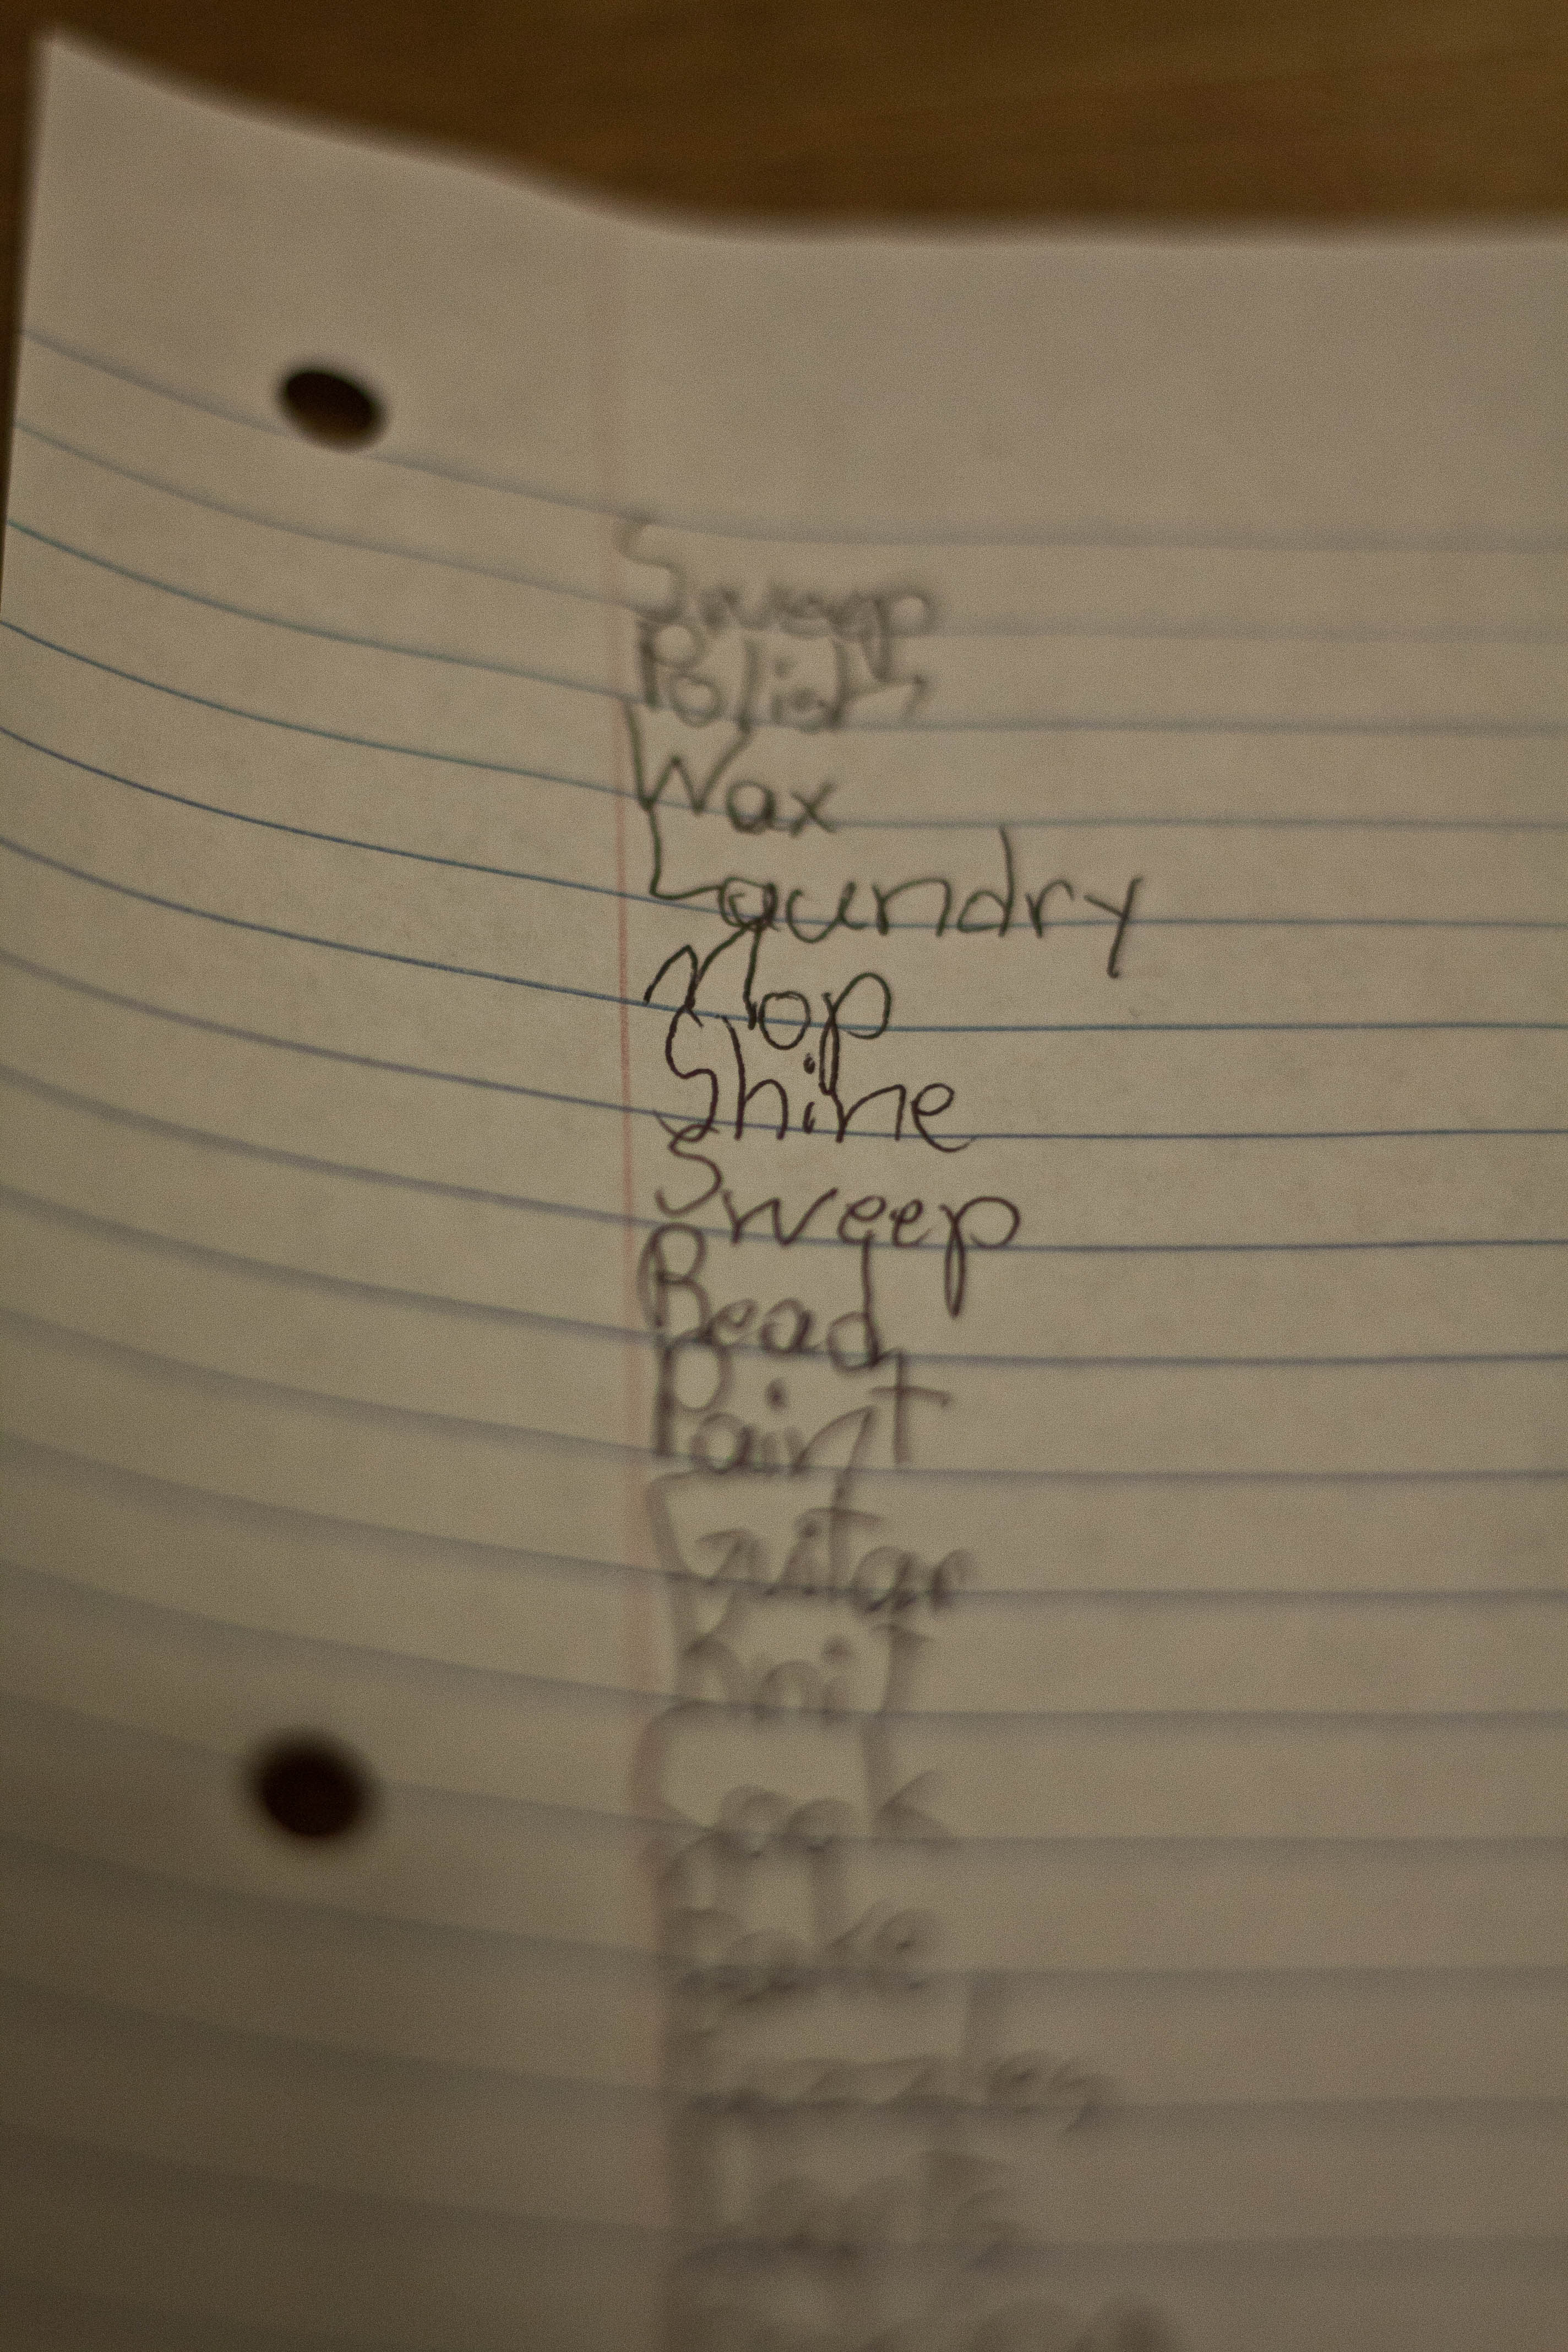 Sweep
Polish
Wax
Laundry
Mop
Shine
Sweep
Read
Paint
Guitar
Knit
Cook
Bake
Puzzles